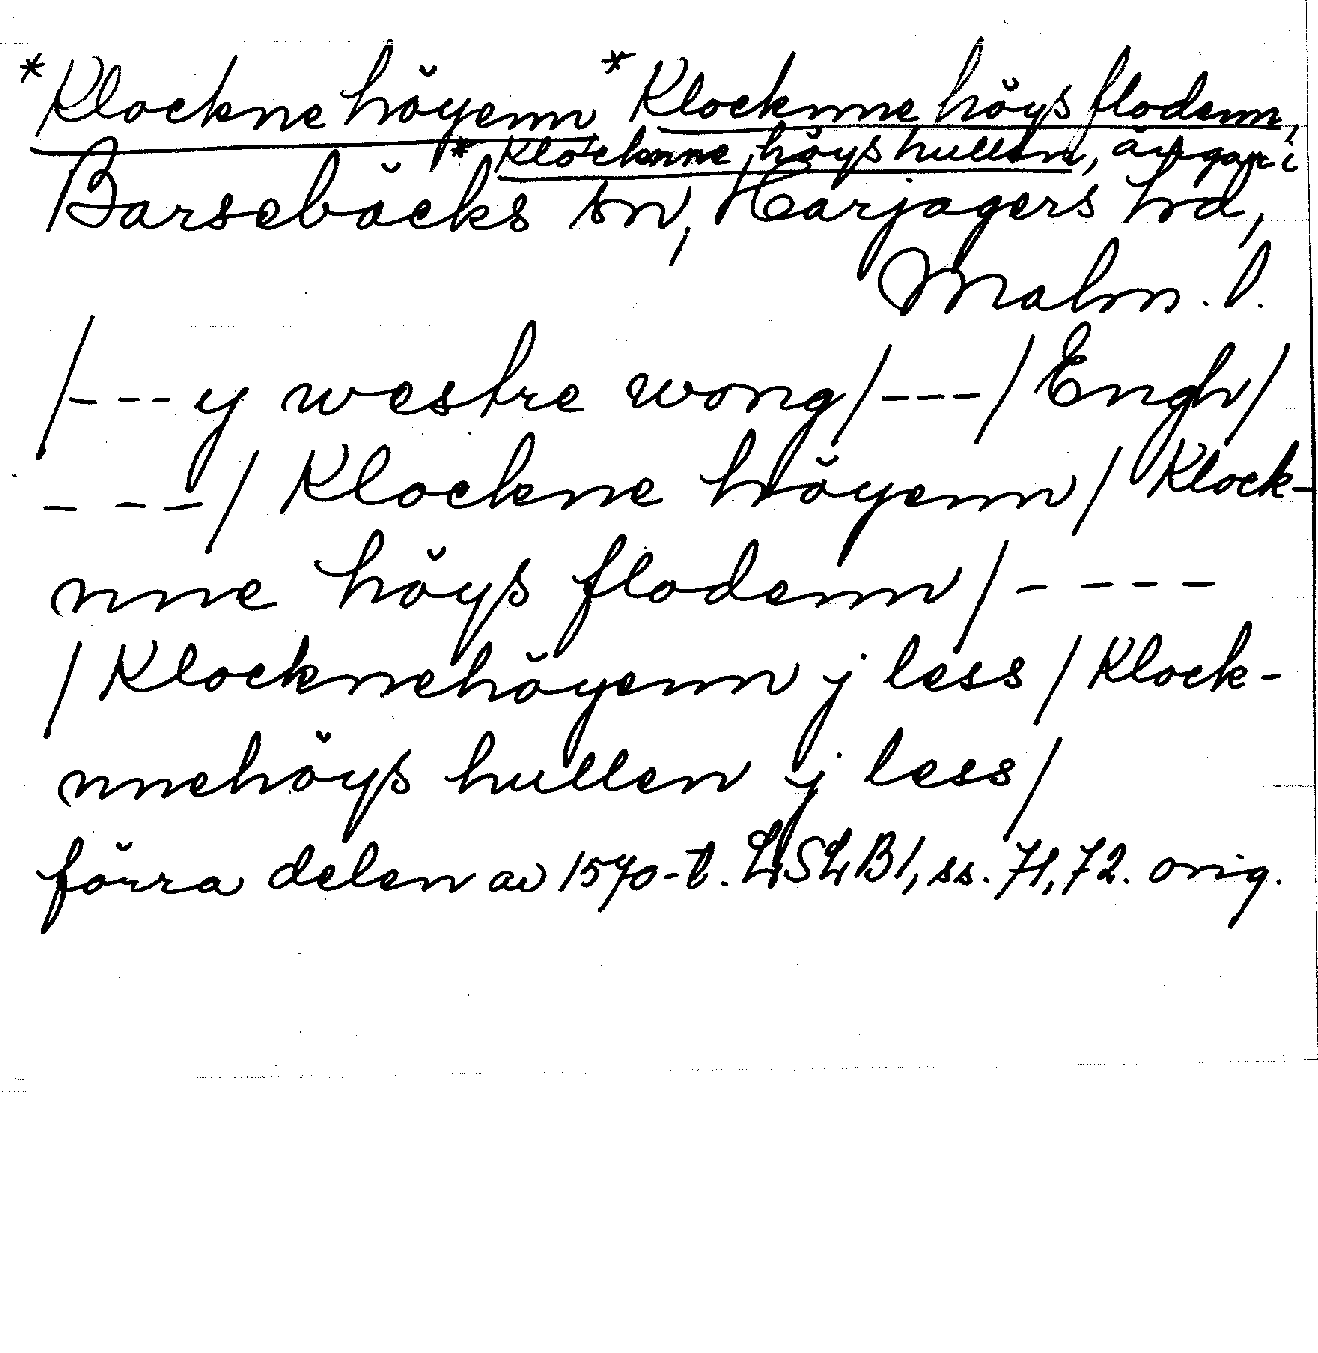 *Klockne höyenn *Klocknne höys flodenn,
*Klocknne höys hullen, ängar i
Barsebäcks sn, Harjagers hd,
Malm. l.
/---y westre wong/---/Engh/
---/Klockne höyenn/Klock-
nne höys flodenn/----
/Klocknehöyenn j less/Klock-
nnehöys hullen j less/
förra delen av 1570-t. LSLB1, ss. 71, 72. orig.